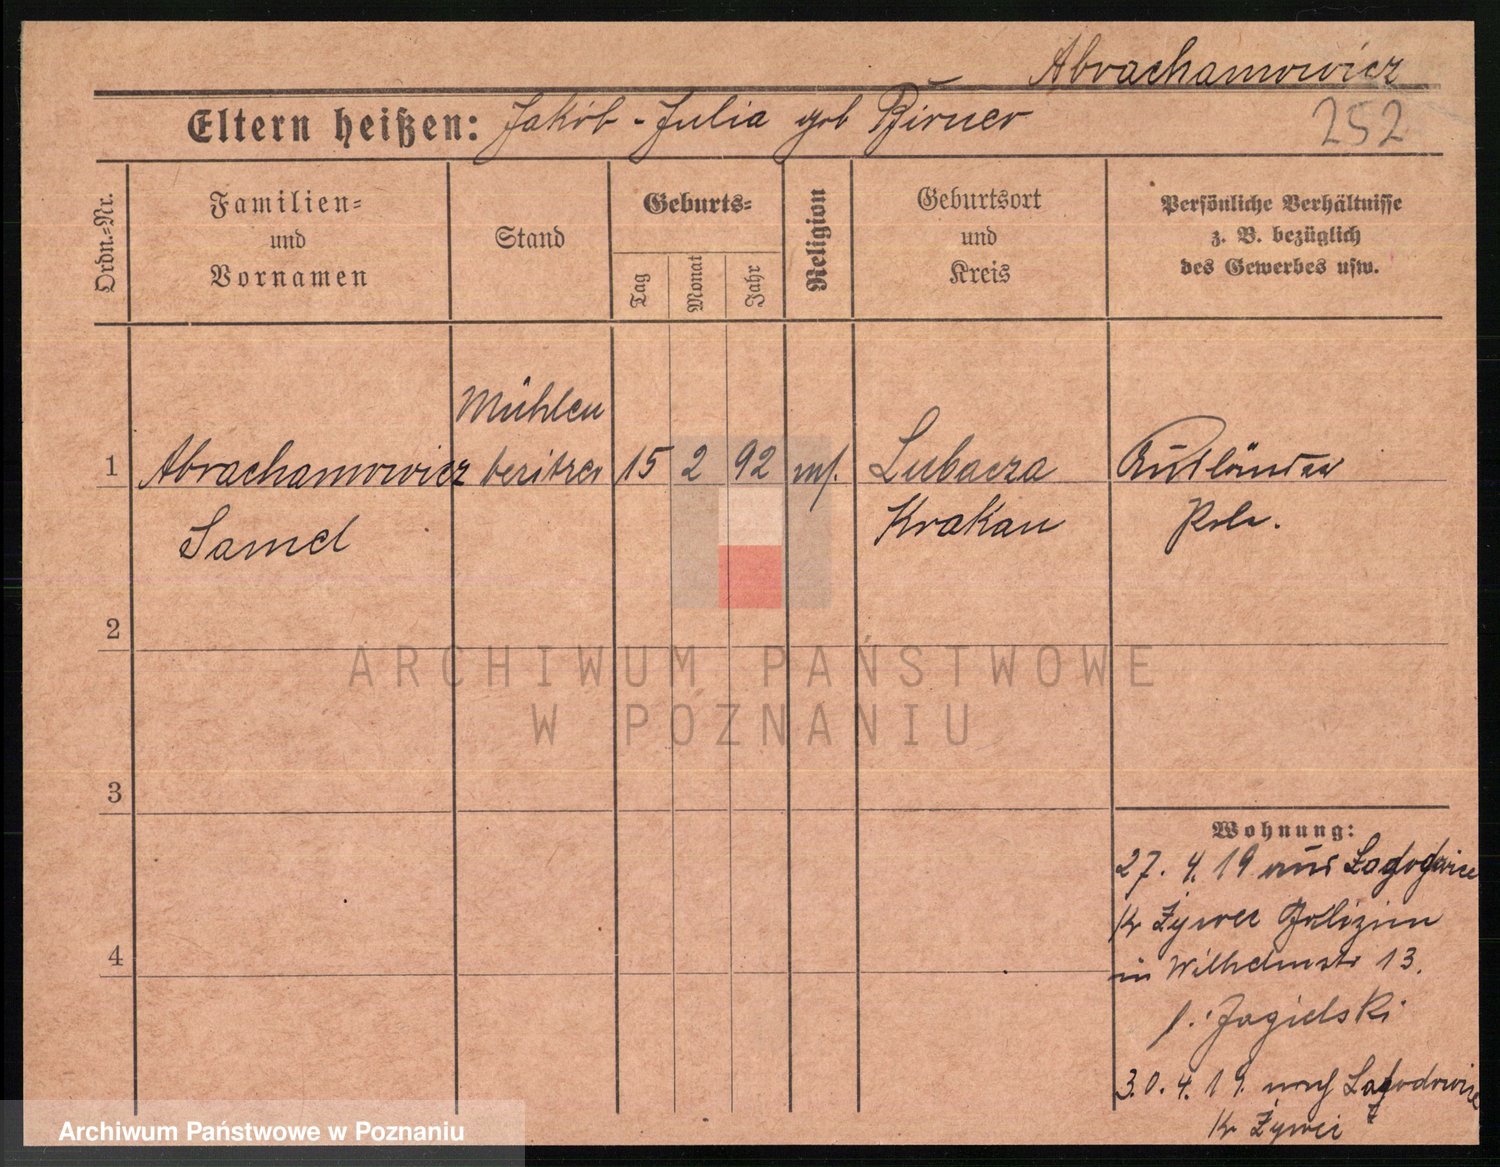 Abrachamowicz
Eltern heißen: Jakób - Julia geb Birner
252
Ordn.-Nr.
Familien-
und
Vornamen
Stand
Geburts-
Tag
Monat
Jahr
Religion
Geburtsort
und
Kreis
Persönliche Verhältnisse
z. B. bezüglich
des Gewerbes usw.
Mühlen
1 Abrachamowicz besitzer 15 2 92 Lubacza Ausländer
Samel Krakau Pole.
2
3
4
Wohnung:
27. 4. 19 aus
Kr Żywec
in Wilhelmstr 13.
Jagielski
30. 4. 19. nach
Kr Żywec
ARCHIWUM PAŃSTWOWE
W POZNANIU
Archiwum Państwowe w Poznaniu